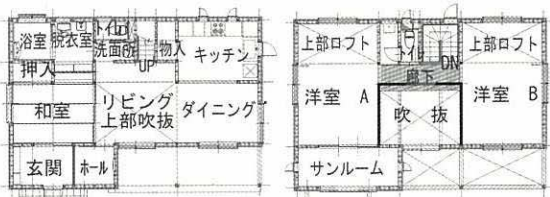 浴室
脱衣室
トイレ
洗面所
UP
物入
キッチン
押入
和室
リビング
上部吹抜
ダイニング
玄関
ホール
上部ロフト
トイレ
DN
上部ロフト
廊下
洋室 A
吹抜
洋室 B
サンルーム